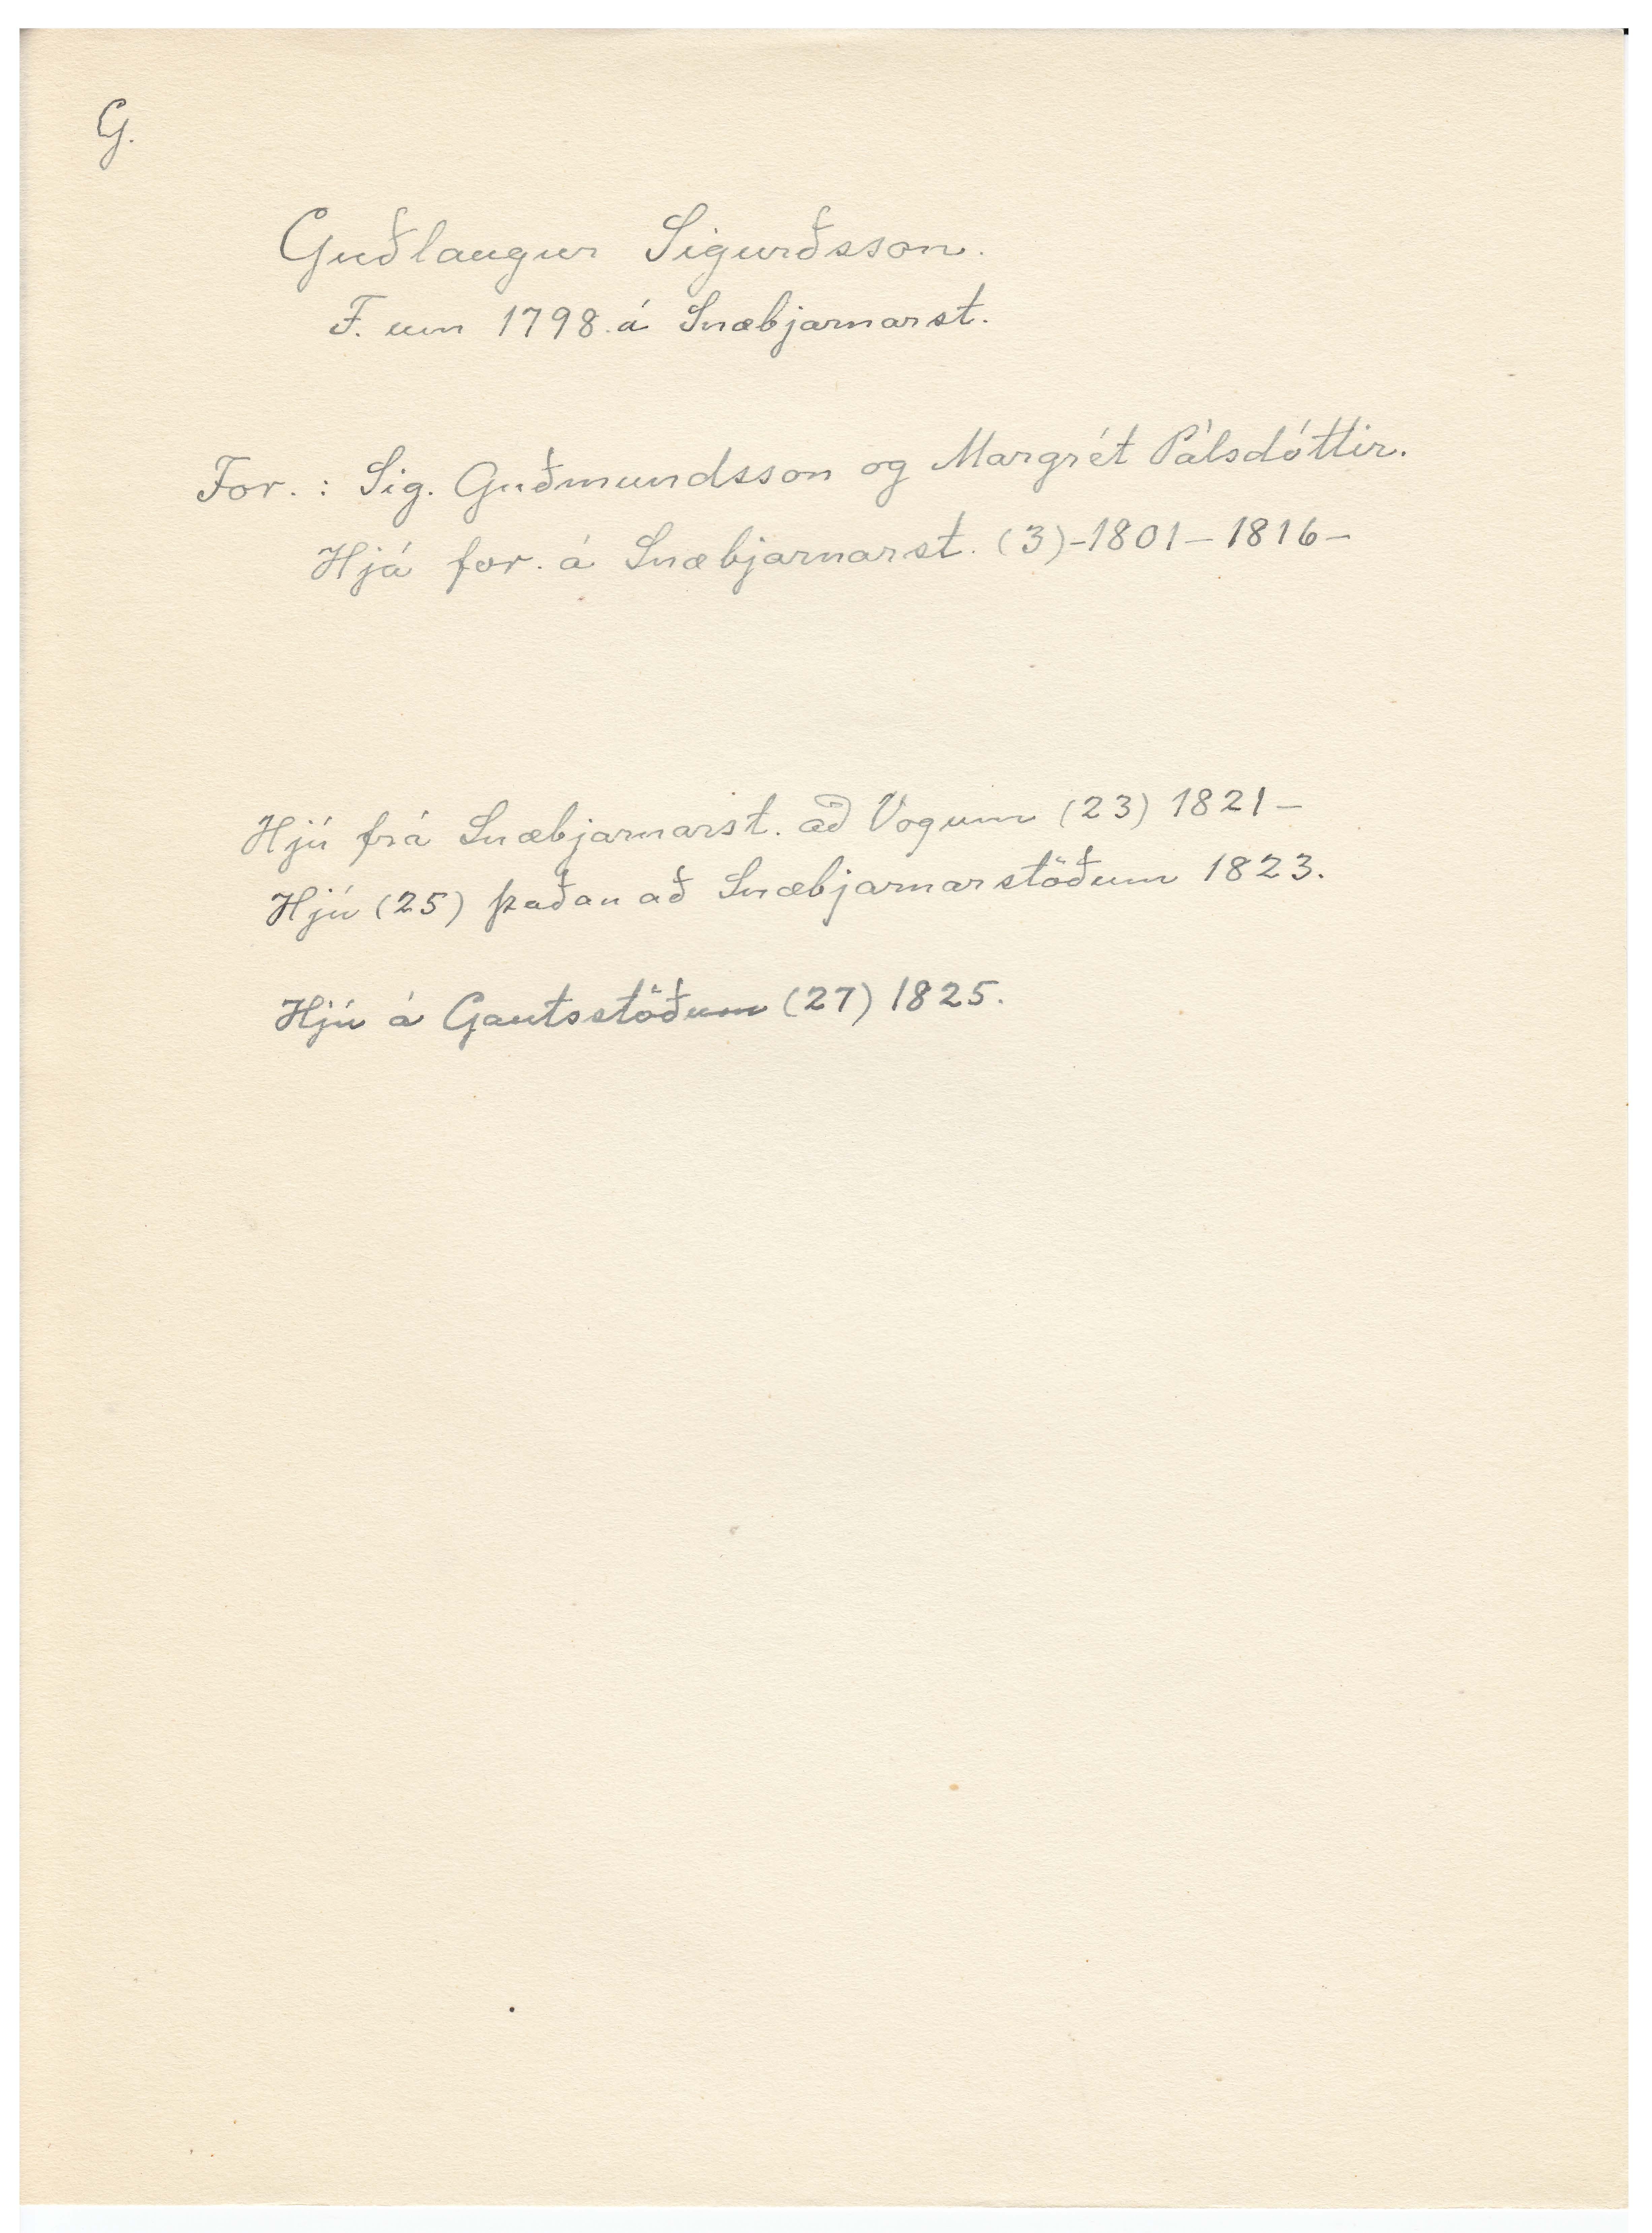 G.
Guðlaugur Sigurðsson.
F. um 1798 á Snæbjarnarst.
For. : Sig. Guðmundsson og Margrét Pálsdóttir.
Hjá for. á Snæbjarnarst. (3)-1801-1816-
Hjú frá Snæbjarnarst. að Vogum (23) 1821-
Hjú (25) þaðan að Snæbjarnarstöðum 1823.
Hjú á Gautsstöðum (27) 1825.